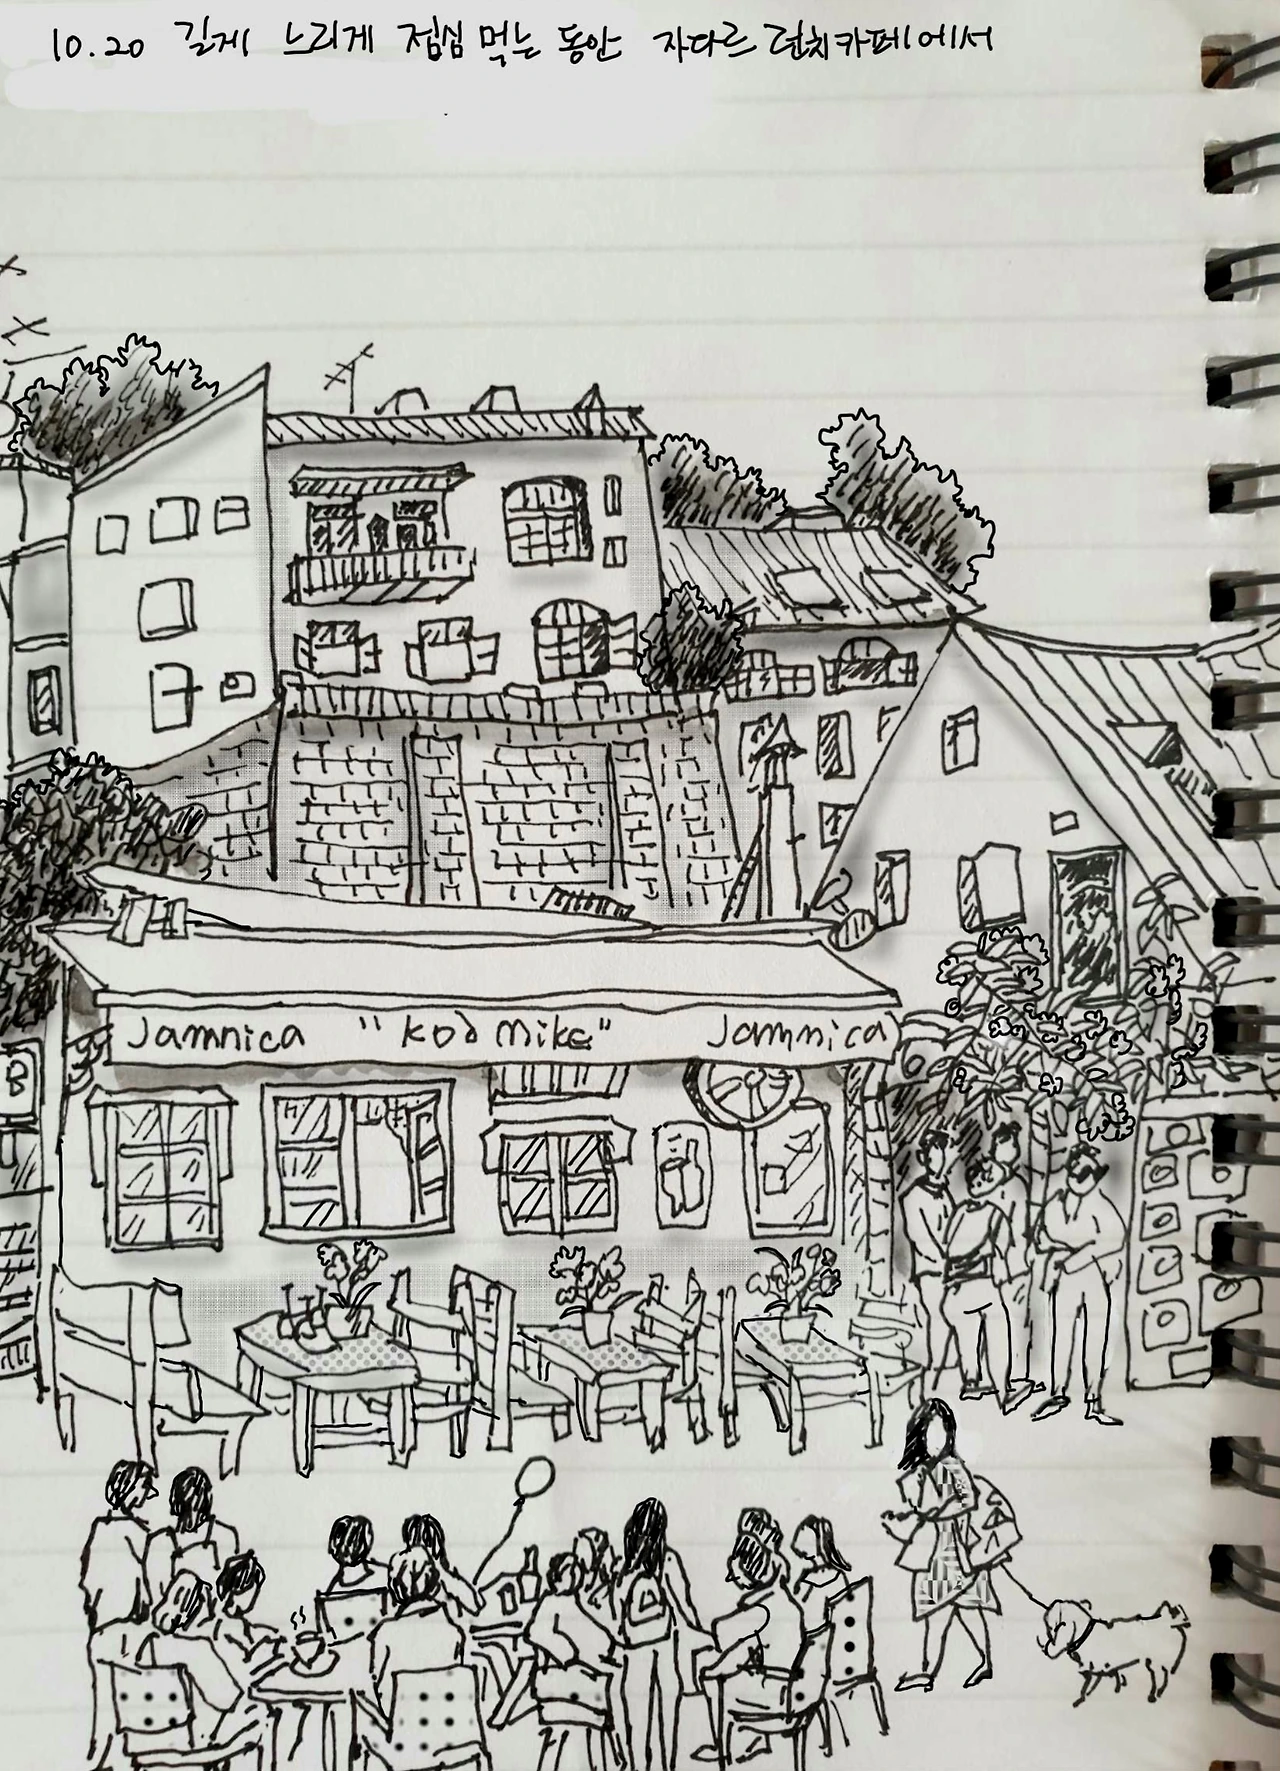 10.20 길게 느리게 점심 먹는 동안 자다르 런치카페에서
Jamnica "Kod Mike" Jamnica